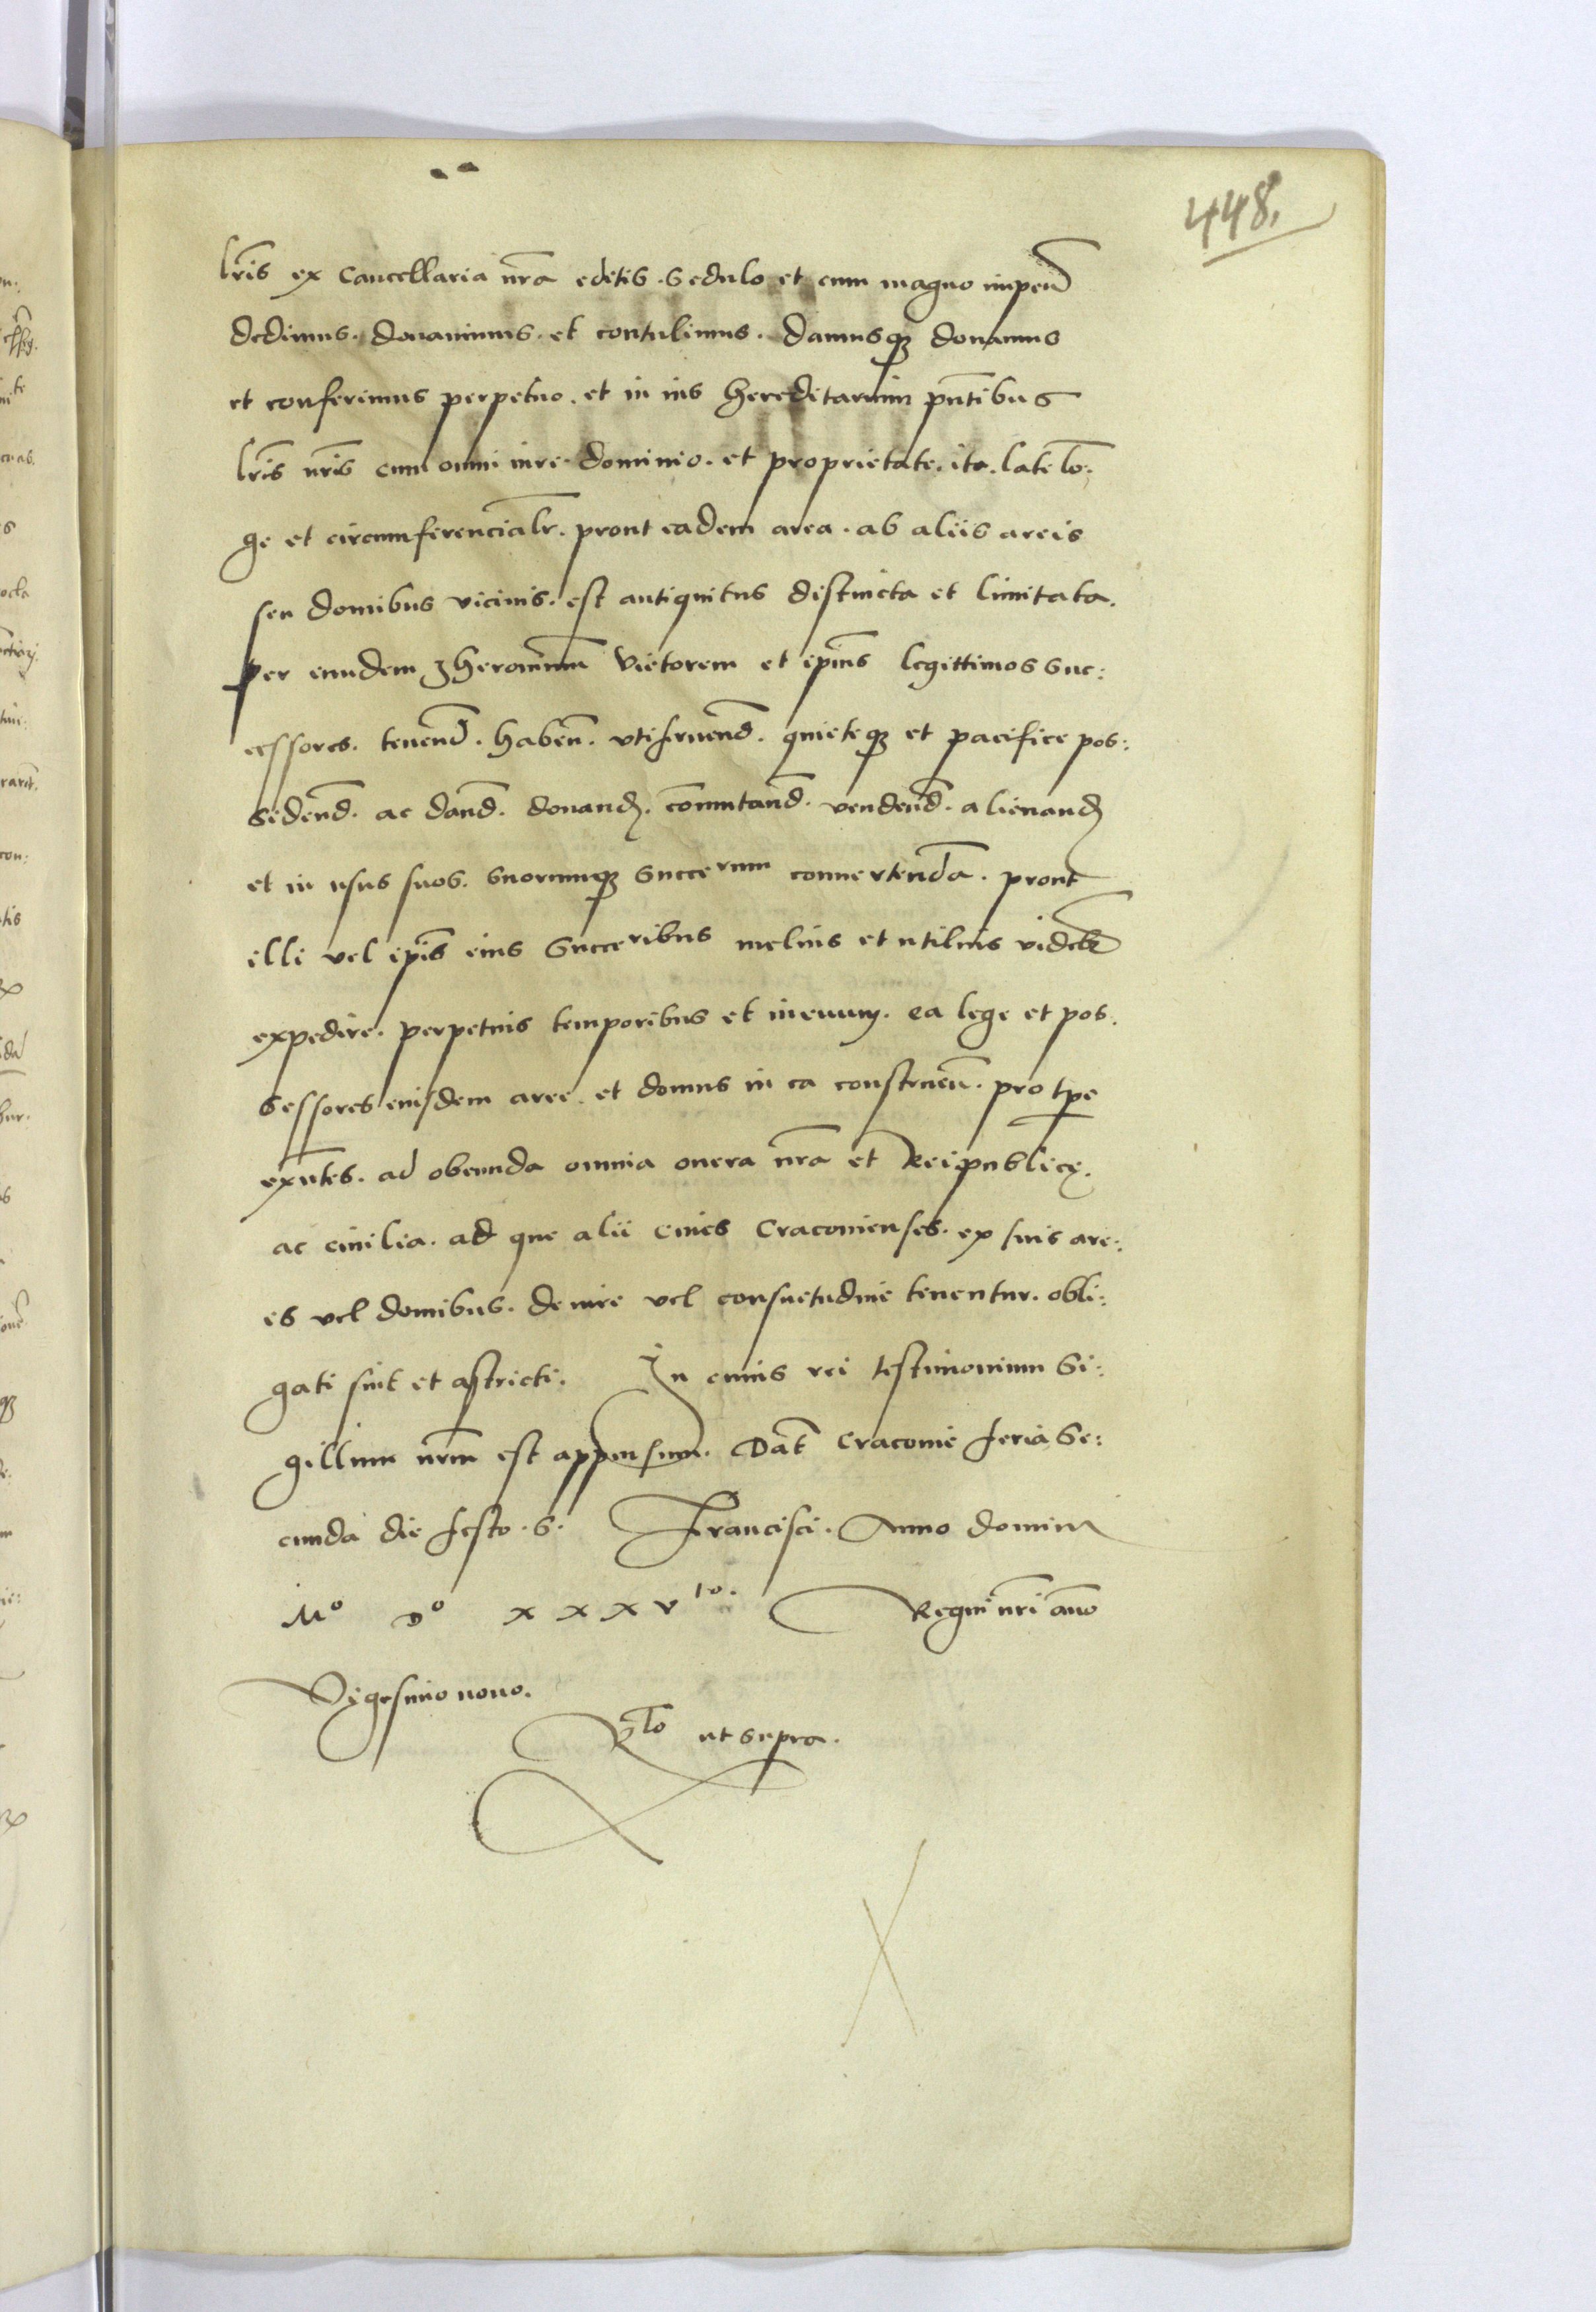 448.
lr̃is ex Cancellaria nr̃a editis. Sedulo et cum magno impen̄
dedimus. donauimus. et contulimus. damusqʒ donamus
et conferimus perpetuo. et in ius hereditarium pn̄tibus
lr̃is nr̃is cum omni iure. dominio. et proprietate. ita. late lo͞n:
ge et circumferencialr̃. prout eadem area. ab aliis areis
seu domibus vicinis. est antiquitus distincta et limitata.
per eundem Jheronimum Vietorem et ip̄ius legittimos suc:
cessores. tenend̄. haben̄. vtifruend̄. quieteqʒ et pacifice pos:
sidend̄. ac dand̄. donand̄. co͞mutand̄. vendend̄. alienand̄
et in usus suos. suorumqʒ Succerum conuertenda. prout
illi vel ip̄is eius Succeribus melius et utilius videb͞r
expedire. perpetuis temporibus et ineuum. ea lege et pos:
sessores eiusdem aree. et domus in ea construen̄. pro tp̄e
exn̄tes. ad obeunda omnia onera nr̃a et Reipublicę.
ac ciuilia. ad que alii ciues Cracouienses. ex suis are:
is vel domibus. de iure vel consuetudine tenentur. obli:
gati sint et astricti. In cuius rei testimonium Si:
gillum nr̃m est appensum. Dat̄ Cracouie feria Se:
cunda die festo. S. Francisci. Anno domini
Mº Dº XXXVto. Regni nr̃i an̄o
Vigesimo nono.
Rlo ut supra.